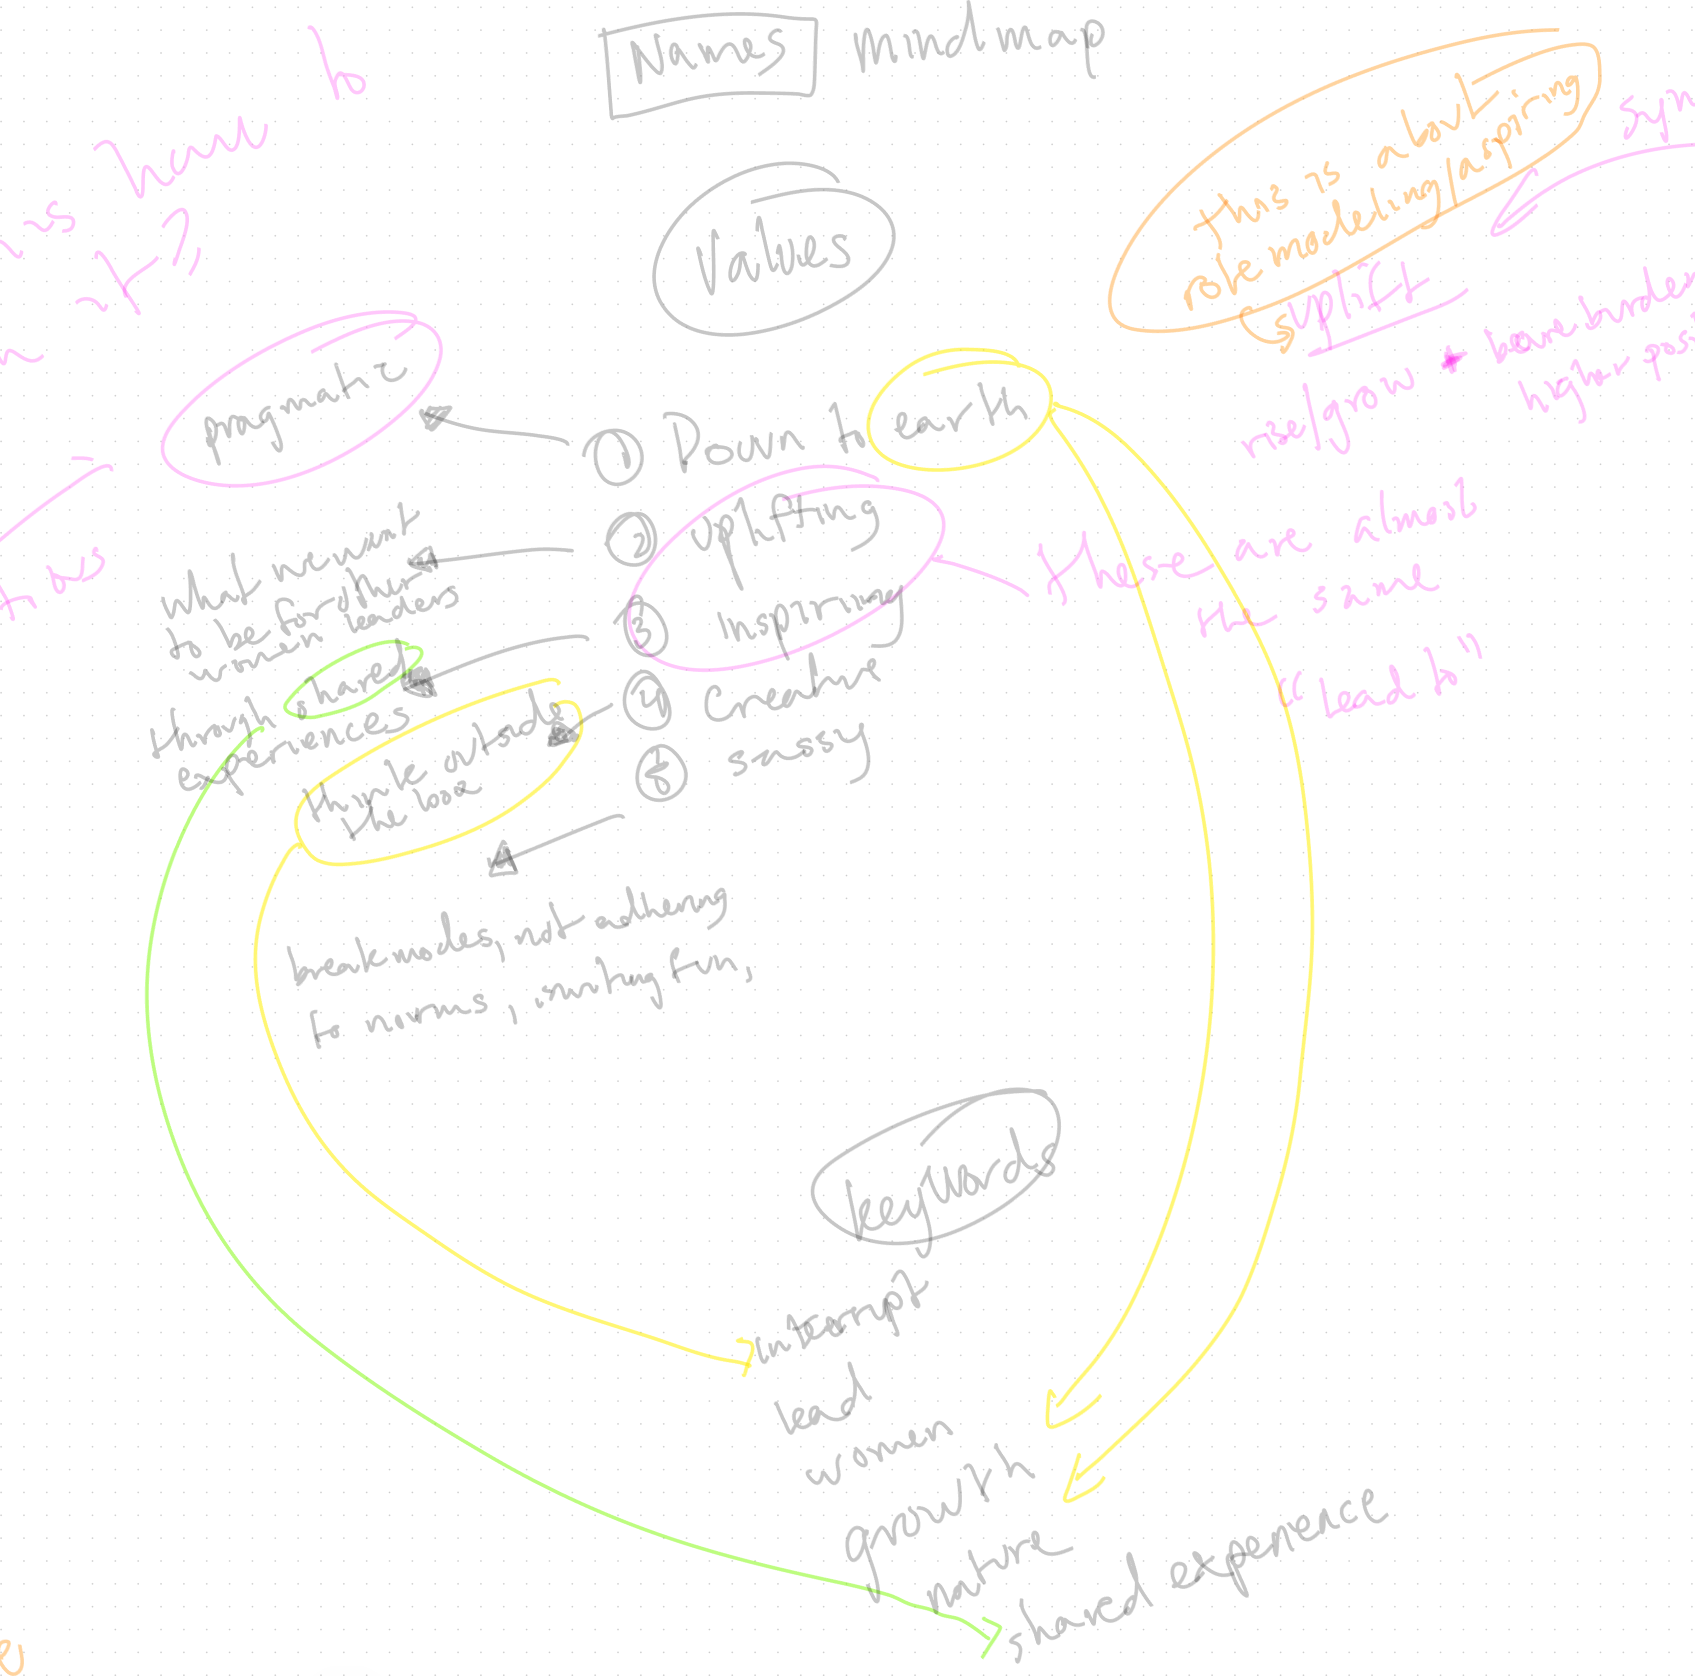 Names mindmap
to
have
is
it?
this is about
role modeling/aspiring
syn
Values
uplift
rise/grow
higher pos
pragmatic
① Down to earth
② Uplifting
③ Inspiring
④ Creative
⑤ sassy
these are almost
the same
"lead to"
what we want
to be for other
women leaders
through shared
experiences
us
think outside
the box
break modes, not adhering
to norms, inviting fun,
keywords
interrupt
lead
women
growth
nature
shared experience